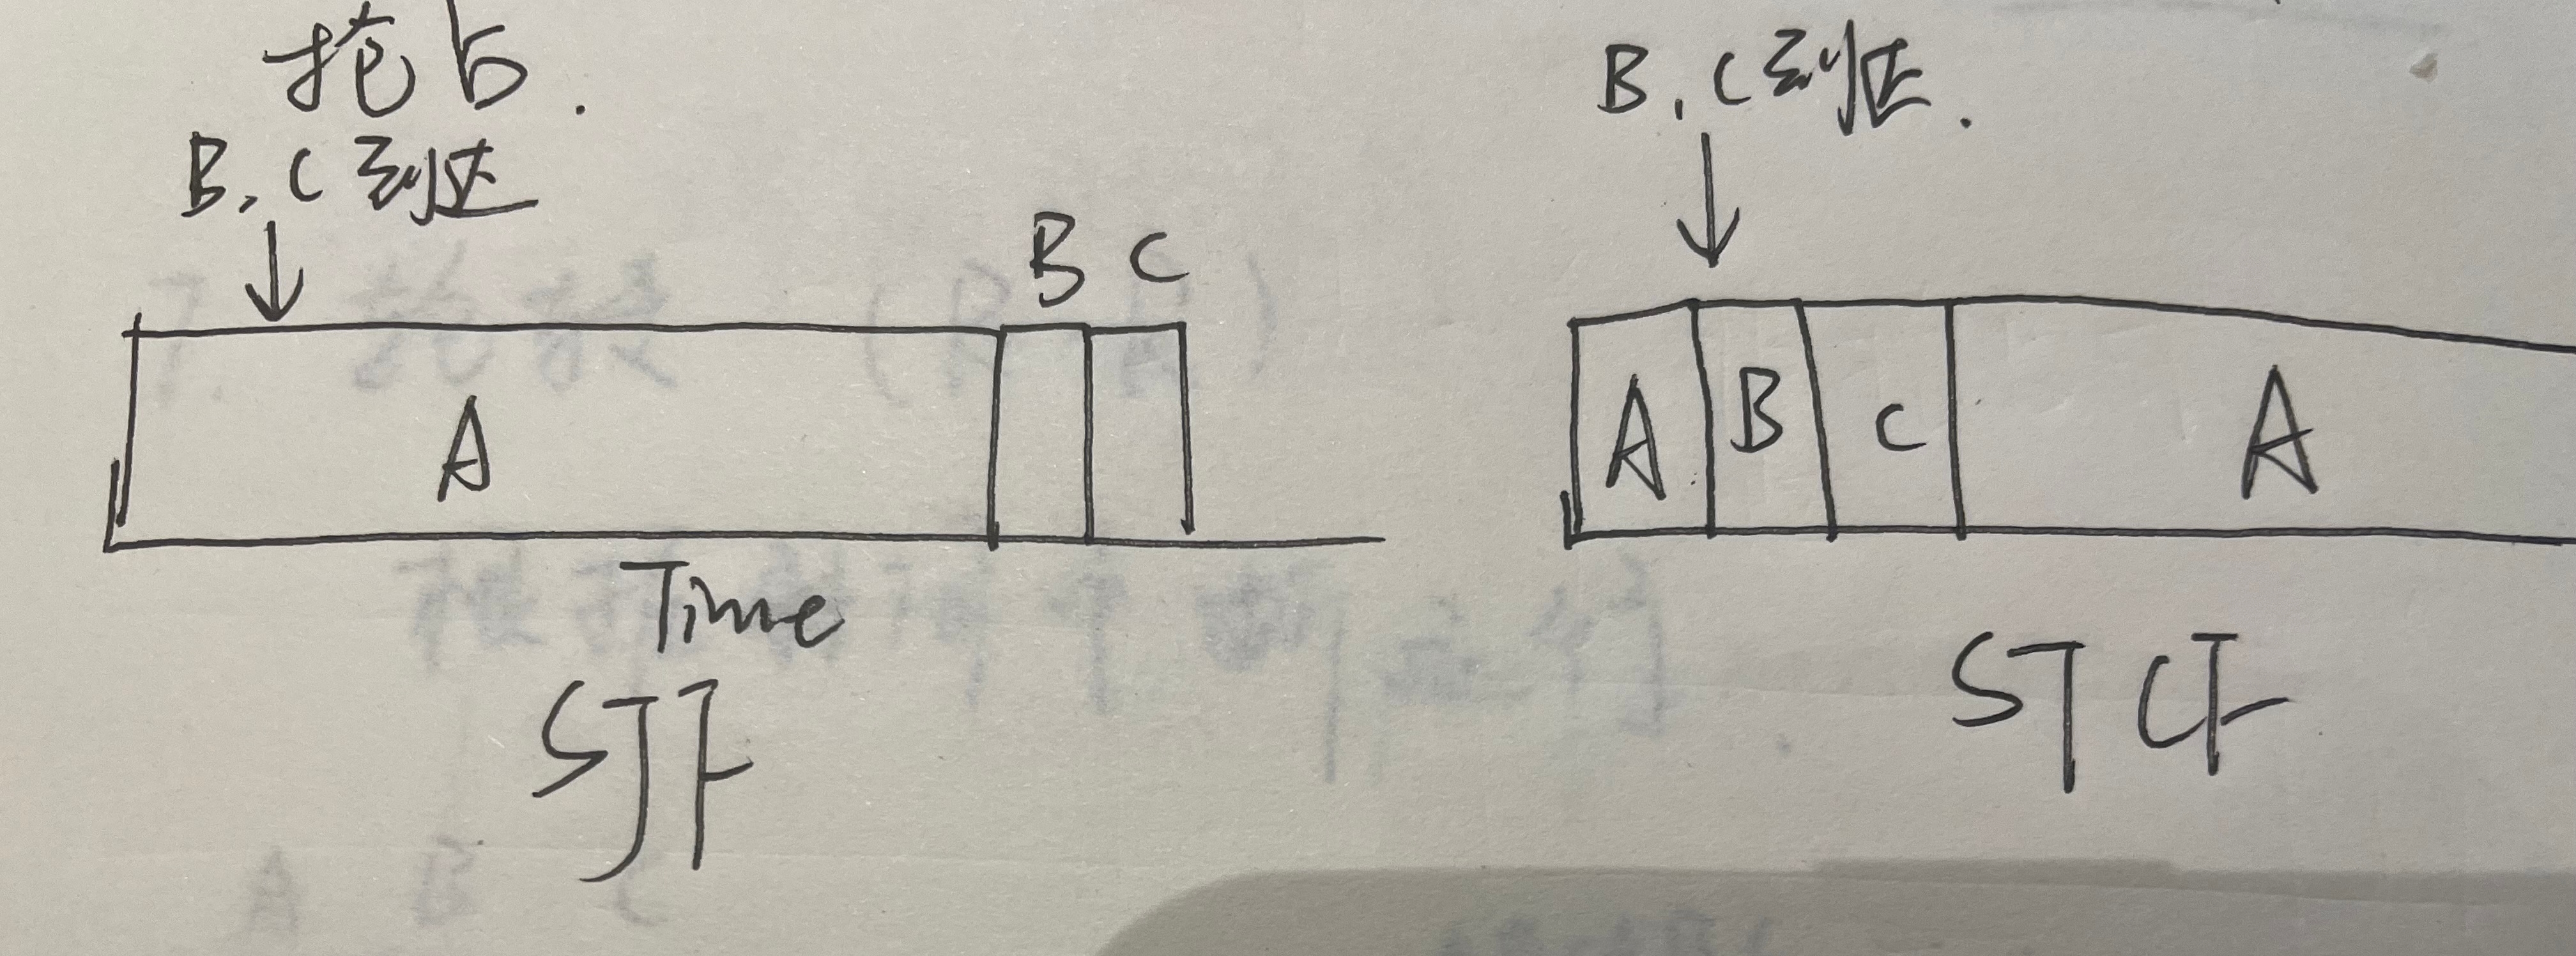 抢占.
B, C到达
B C
A
Time
SJF
B, C到达.
A B C A
STCF